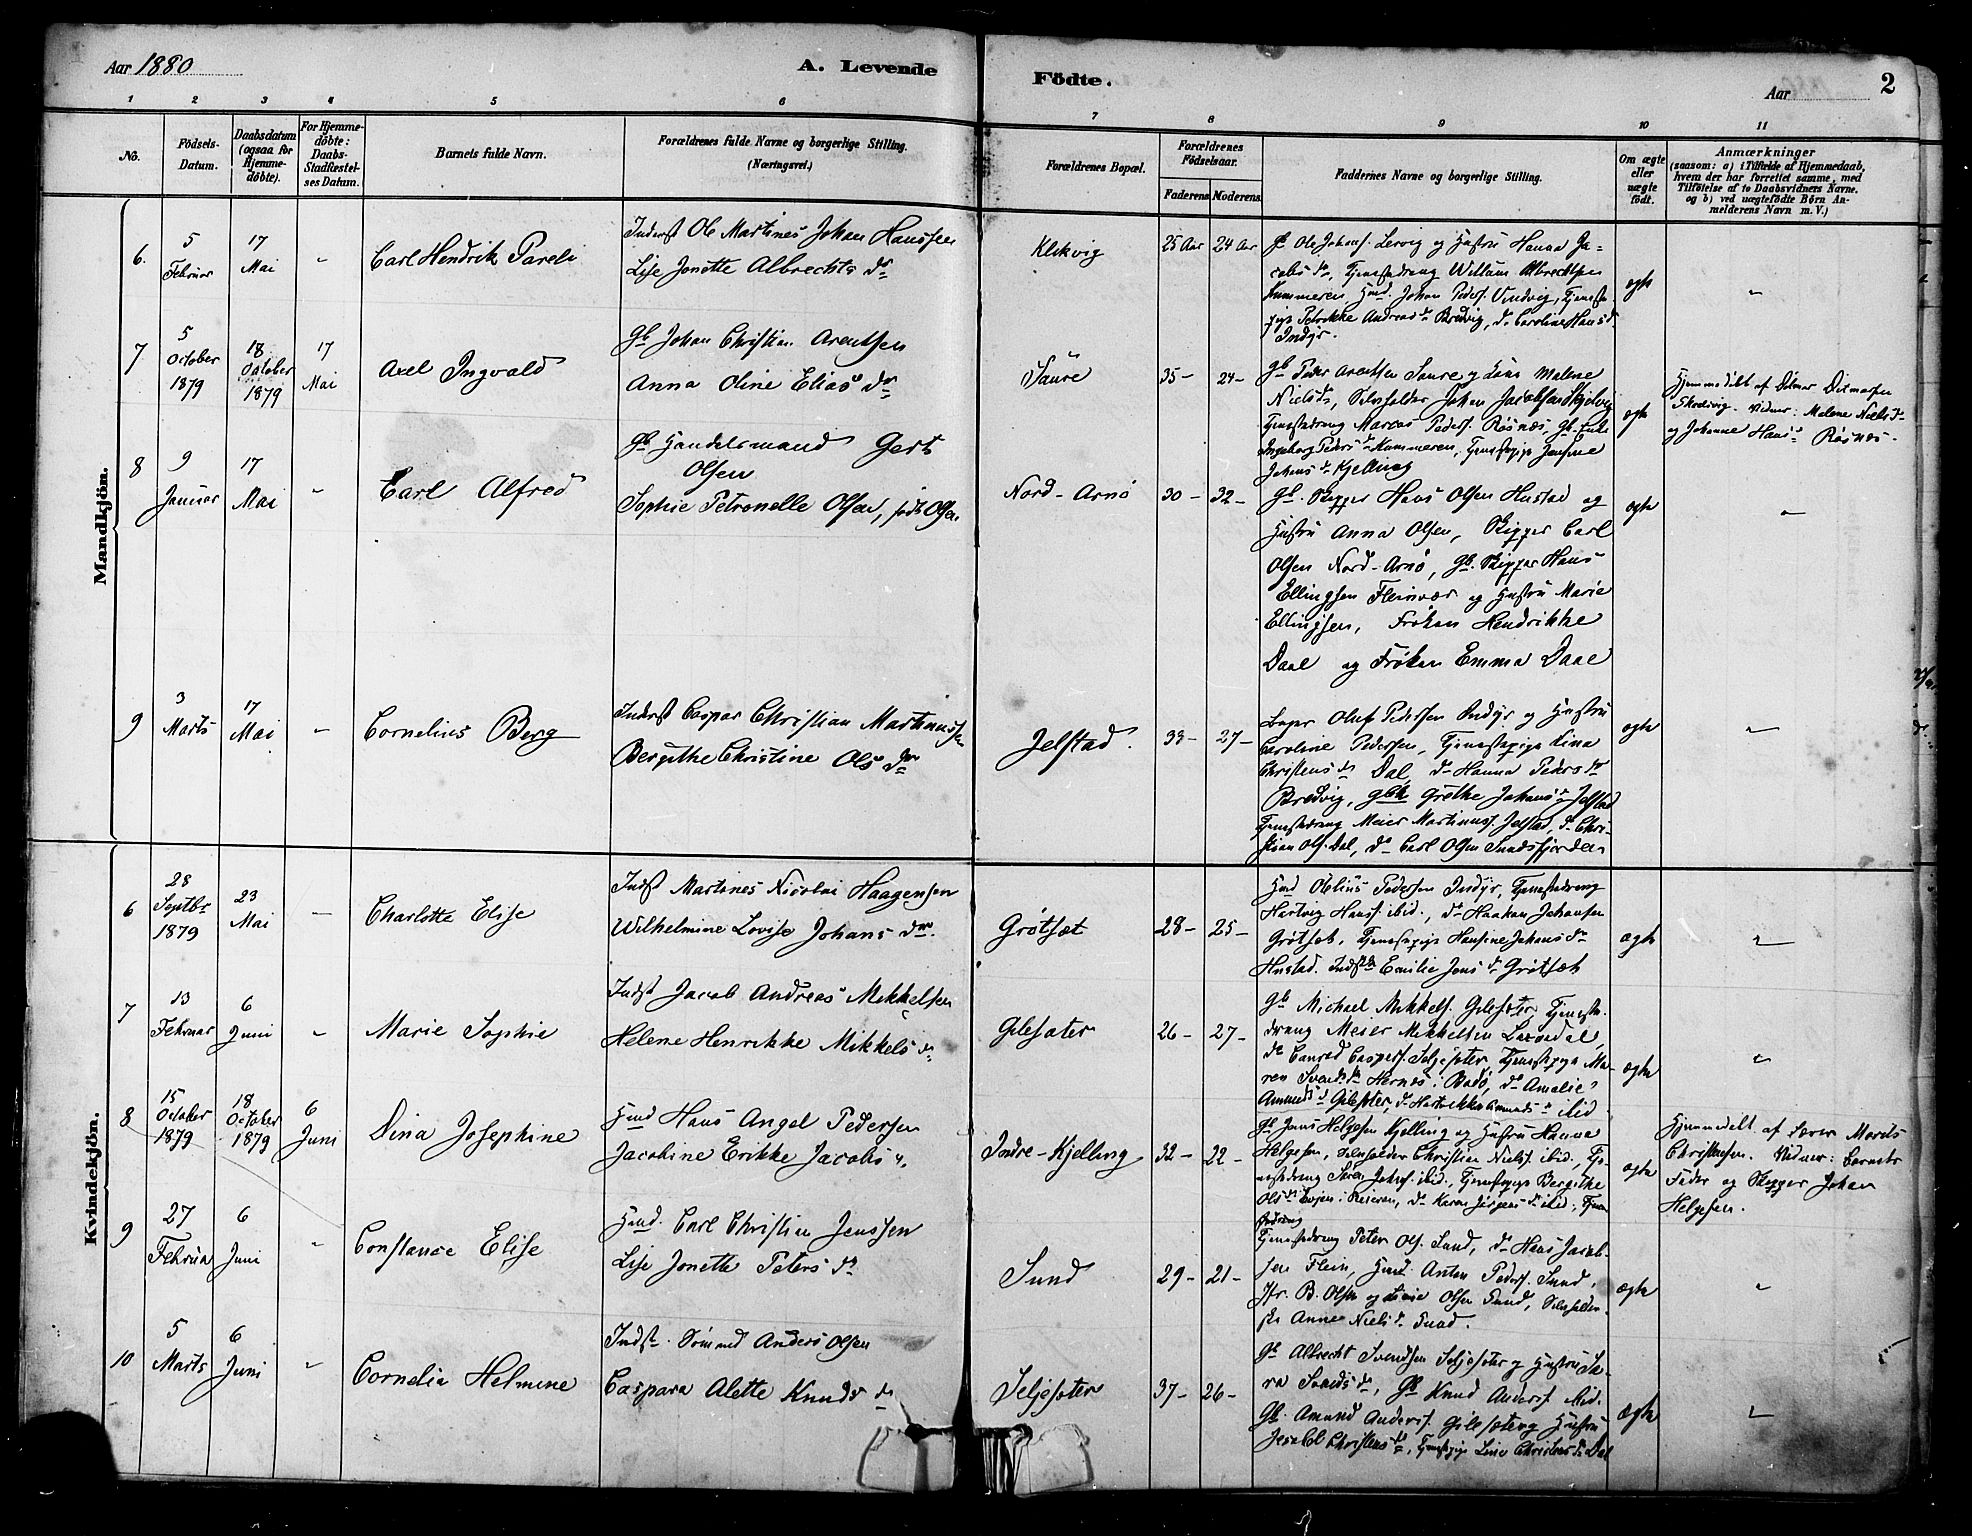 Aar 1880
A. Levende
Födte.
Aar
2
1 2 3 4 5 6 7 8 9 10 11
No.
Födsels-
Datum.
Daabsdatum
(ogsaa for
Hjemme-
döbte).
For Hjemme-
döbte:
Daabs-
Stadfæstel-
ses Datum.
Barnets fulde Navn.
Forældrenes fulde Navne og borgerlige Stilling.
(Næringsvei.)
Forældrenes Bopæl.
Forældrenes
Födselsaar.
Faderens Moderens
Faddernes Navne og borgerlige Stilling.
Om ægte
eller
uægte
födt.
Anmærkninger
(saasom: a) i Tilfælde af Hjemmedaab,
hvem der har forrettet samme, med
Tilföielse af to Daabsvidners Navne.
og b) ved uægtefödte Börn An-
melderens Navn m. V.)
Mandkjön.
6.
5
Februar
17
Mai
"
Carl Hendrik Pareli
Inderst Ole Martines Johan Hanssen
Lise Jonette Albrechts dr
Klekvig
25 Aar 24 Aar
Gb Ole Johans. Lervig og Hustru Hanna Ja-
cobs dr, Tjenestedreng Willum Albrechtsen
Kummeren, Hmd. Johan Peders. Vindvig, Tjeneste-
pige Petrikke Andreas dr Bredvig, do Caroline Hans dr
Indyr.
ægte
"
7
5
October
1879
18
October
1879
17
Mai
Axel Ingvald
Gb Johan Christian Arentsen
Anna Oline Elias dr
Saure
35- 24-
Gb Peder Arentsen Saure og Kone Malene
Niels dr, Selvfolder Johan Jacobsen Skjelvig
Tjenestedreng Marcus Peders. Røsnæs, Gb. Enke
Ingeborg Peders dr Kummeren, Tjenestepige Jensine
Johans dr Kjelling
ægte
Hjemmedøbt af Ditmar Ditmarsen
Skodsvig. Vidner: Malene Niels dr
og Johanne Hans dr Røsnæs.
8
9
Januar
17
Mai
"
Carl Alfred
Gb Handelsmand Gert
Olsen
Sophie Petronelle Olsen, født Olsen
Nord-Arnø
30- 32-
Gb. Skipper Hans Olsen Hustad og
Hustru Anna Olsen, Skipper Carl
Olsen Nord-Arnø, Gb. Skipper Hans
Ellingsen Fleinvær og Hustru Marie
Ellingsen, Frøken Hendrikke
Daae og Frøken Emma Daae
ægte
"
9
3
Marts
17
Mai
"
Cornelius Berg
Inderst Caspar Christian Martinussen
Bergithe Christine Ols dr
Jelstad.
33- 27-
Oluf Pedersen Indyr og Hustru
Caroline Pedersen, Tjenestepige Lina
Christens dr Dal, do Hanna Peders dr
Bredvig, Grethe Johans dr Jelstad
Tjenestedreng Meier Martinuss. Jelstad, do Chri-
stian Ols. Dal, do Carl Olsen Sundsfjorden
ægte
"
Kvindekjön.
6
28
Septbr
1879
23
Mai
"
Charlotte Elise
Indst Martines Nicolai Haagensen
Wilhelmine Lovise Johans dr.
Grøtsæt
28- 25-
Hmd Obelius Pedersen Indyr, Tjenestedreng
Hartvig Hanss. ibid., do Haakon Johansen
Grøtsæt, Tjenestepige Hansine Johans dr
Hustad. Indst Emilie Jens dr Grøtsæt
ægte
"
7
13
Februar
6
Juni
"
Marie Sophie
Indst Jacob Andreas Mikkelsen
Helene Henrikke Mikkels dr
Gilesæter
26- 27-
Gb Michael Mikkels. Gilesæter, Tjeneste-
dreng Meier Mikkelsen Laxædal,
do Conrad Caspers. Seljesæter, Tjenestepige Ma-
ren Svends dr Hernes i Bodø, do Amalie
Amunds dr Gilesæter, do Hartvikka Amunds dr ibid
ægte
"
8
15
October
1879
18
October
1879
6
Juni
Dina Josephine
Hmd Hans Angel Pedersen
Jacobine Erikke Jacobs dr.
Indre-Kjelling
32- 22-
Gb Jens Helgesen Kjelling og Hustru Hanna
Helgesen, Selvfolder Christian Niels. ibid., Tje-
nestedreng Søren Johns. ibid., Tjenestepige Bergithe
Ols dr Evjen i Beieren, do Karen Jørgens dr ibid., Tjene-
stedreng
ægte
Hjemmedøbt af Lærer Morits
Christensen. Vidner: Barnets
Fader og Skipper Johan
Helgesen.
9
27
Februa
6
Juni
"
Constance Elise
Hmd. Carl Christian Jenssen
Lise Jonette Peters dr
Sund
29- 21-
Tjenestedreng Peter Ols. Sund, do Hans Jacob-
sen Flein, Hmd. Anton Peders. Sund,
Jfr. B. Olsen og Lovise Olsen Sund, Selvfolder-
ske Anne Niels dr Sund.
ægte
"
10
5
Marts
6
Juni
"
Cornelia Helmine
Indst. Sømand Anders Olsen
Caspara Alette Knuds dr
Seljesæter
37- 26-
Gb Albrecht Svendsen Seljesæter og Hustru Sa-
ra Svends dr, Gb Knud Anderss. Mid.
Gb. Amund Anderss. Gilesæter og Hustru
Jesabel Christens dr, Tjenestepige Line Christens dr Dal
ægte
"